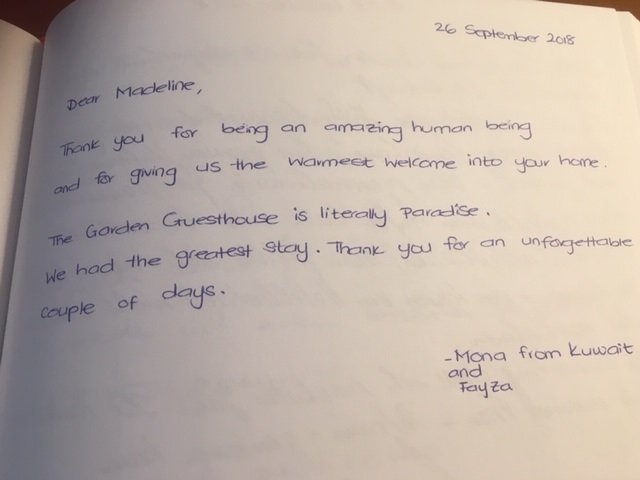 26 September 2018
Dear Madeline,
Thank you for being an amazing human being
and for giving us the warmest welcome into your home.
The Garden Guesthouse is literally Paradise.
We had the greatest stay. Thank you for an unforgettable
couple of days.
-Mona from Kuwait
and
Fayza